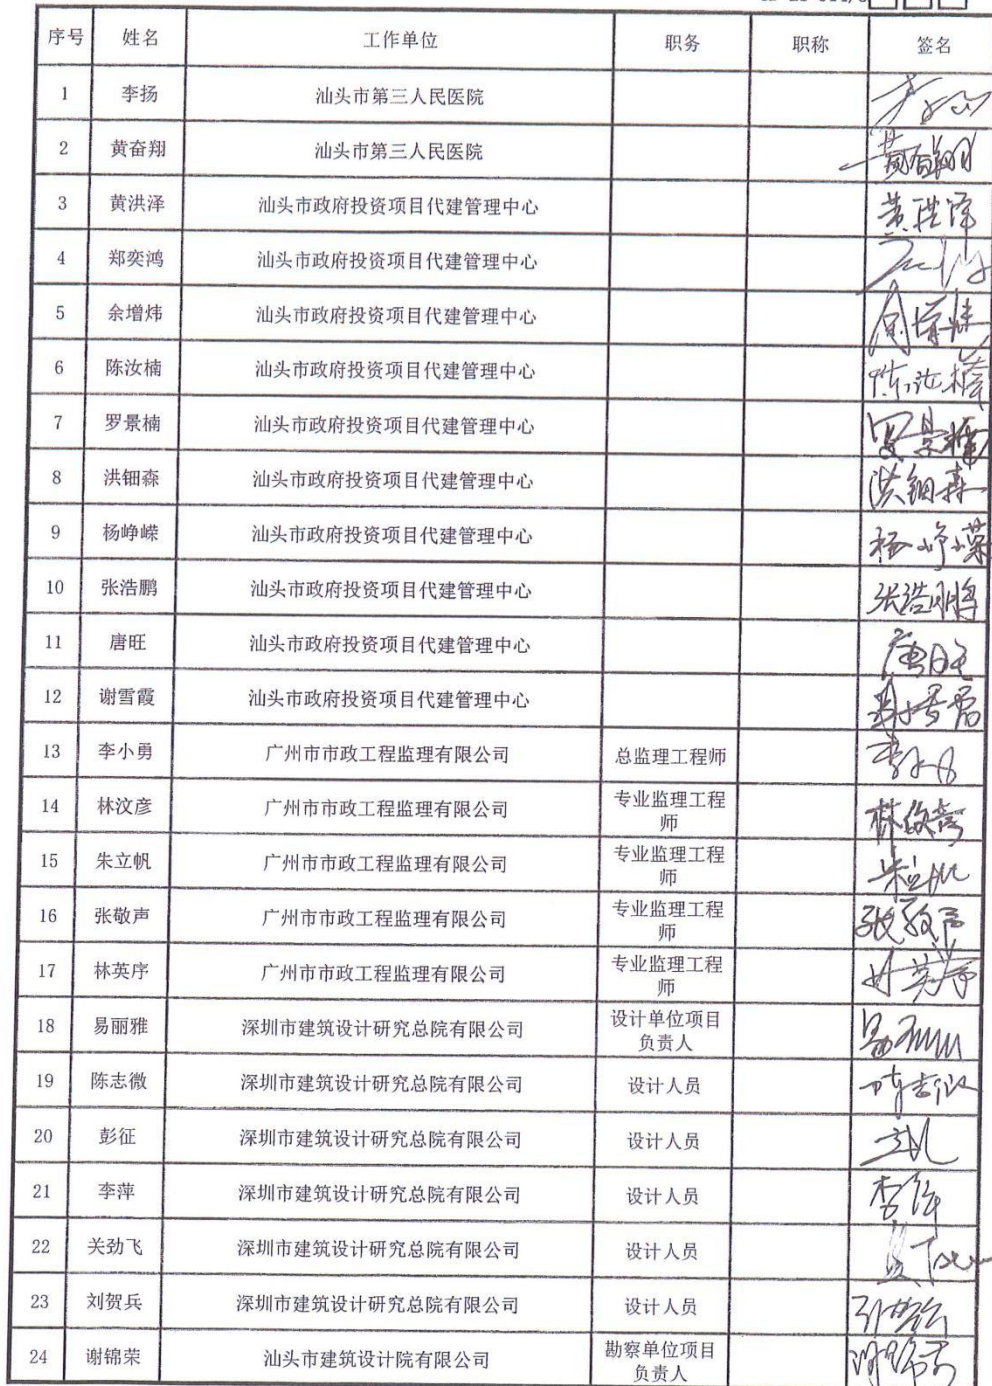 序号 姓名 工作单位 职务 职称 签名
1 李扬 汕头市第三人民医院
2 黄奋翔 汕头市第三人民医院 黄奋翔
3 黄洪泽 汕头市政府投资项目代建管理中心 黄洪泽
4 郑奕鸿 汕头市政府投资项目代建管理中心
5 余增炜 汕头市政府投资项目代建管理中心 余增炜
6 陈汝楠 汕头市政府投资项目代建管理中心 陈汝楠
7 罗景楠 汕头市政府投资项目代建管理中心 罗景楠
8 洪钿森 汕头市政府投资项目代建管理中心 洪钿森
9 杨峥嵘 汕头市政府投资项目代建管理中心 杨峥嵘
10 张浩鹏 汕头市政府投资项目代建管理中心 张浩鹏
11 唐旺 汕头市政府投资项目代建管理中心 唐旺
12 谢雪霞 汕头市政府投资项目代建管理中心
13 李小勇 广州市市政工程监理有限公司 总监理工程师
14 林汶彦 广州市市政工程监理有限公司 专业监理工程师 林汶彦
15 朱立帆 广州市市政工程监理有限公司 专业监理工程师 朱立帆
16 张敬声 广州市市政工程监理有限公司 专业监理工程师 张敬声
17 林英序 广州市市政工程监理有限公司 专业监理工程师 林英序
18 易丽雅 深圳市建筑设计研究总院有限公司 设计单位项目负责人
19 陈志微 深圳市建筑设计研究总院有限公司 设计人员 陈志微
20 彭征 深圳市建筑设计研究总院有限公司 设计人员
21 李萍 深圳市建筑设计研究总院有限公司 设计人员 李萍
22 关劲飞 深圳市建筑设计研究总院有限公司 设计人员
23 刘贺兵 深圳市建筑设计研究总院有限公司 设计人员
24 谢锦荣 汕头市建筑设计院有限公司 勘察单位项目负责人 谢锦荣